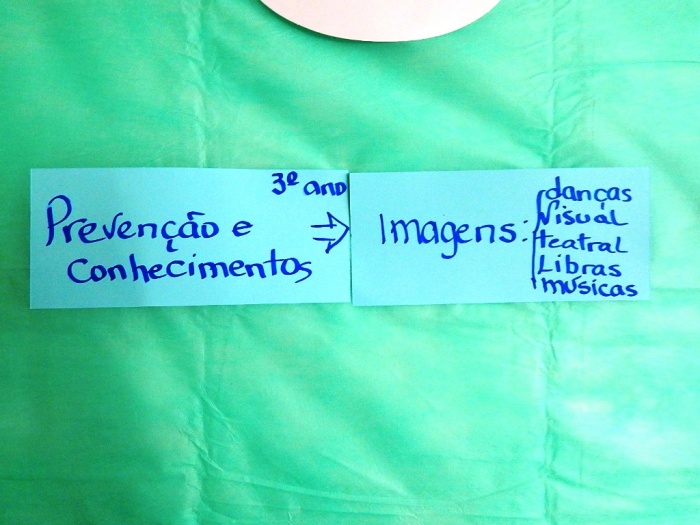 3º ano
Prevenção e
Conhecimentos
⇒
Imagens:
danças
Visual
teatral
Libras
músicas